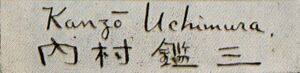 Kanzō Uchimura.
内村鑑三